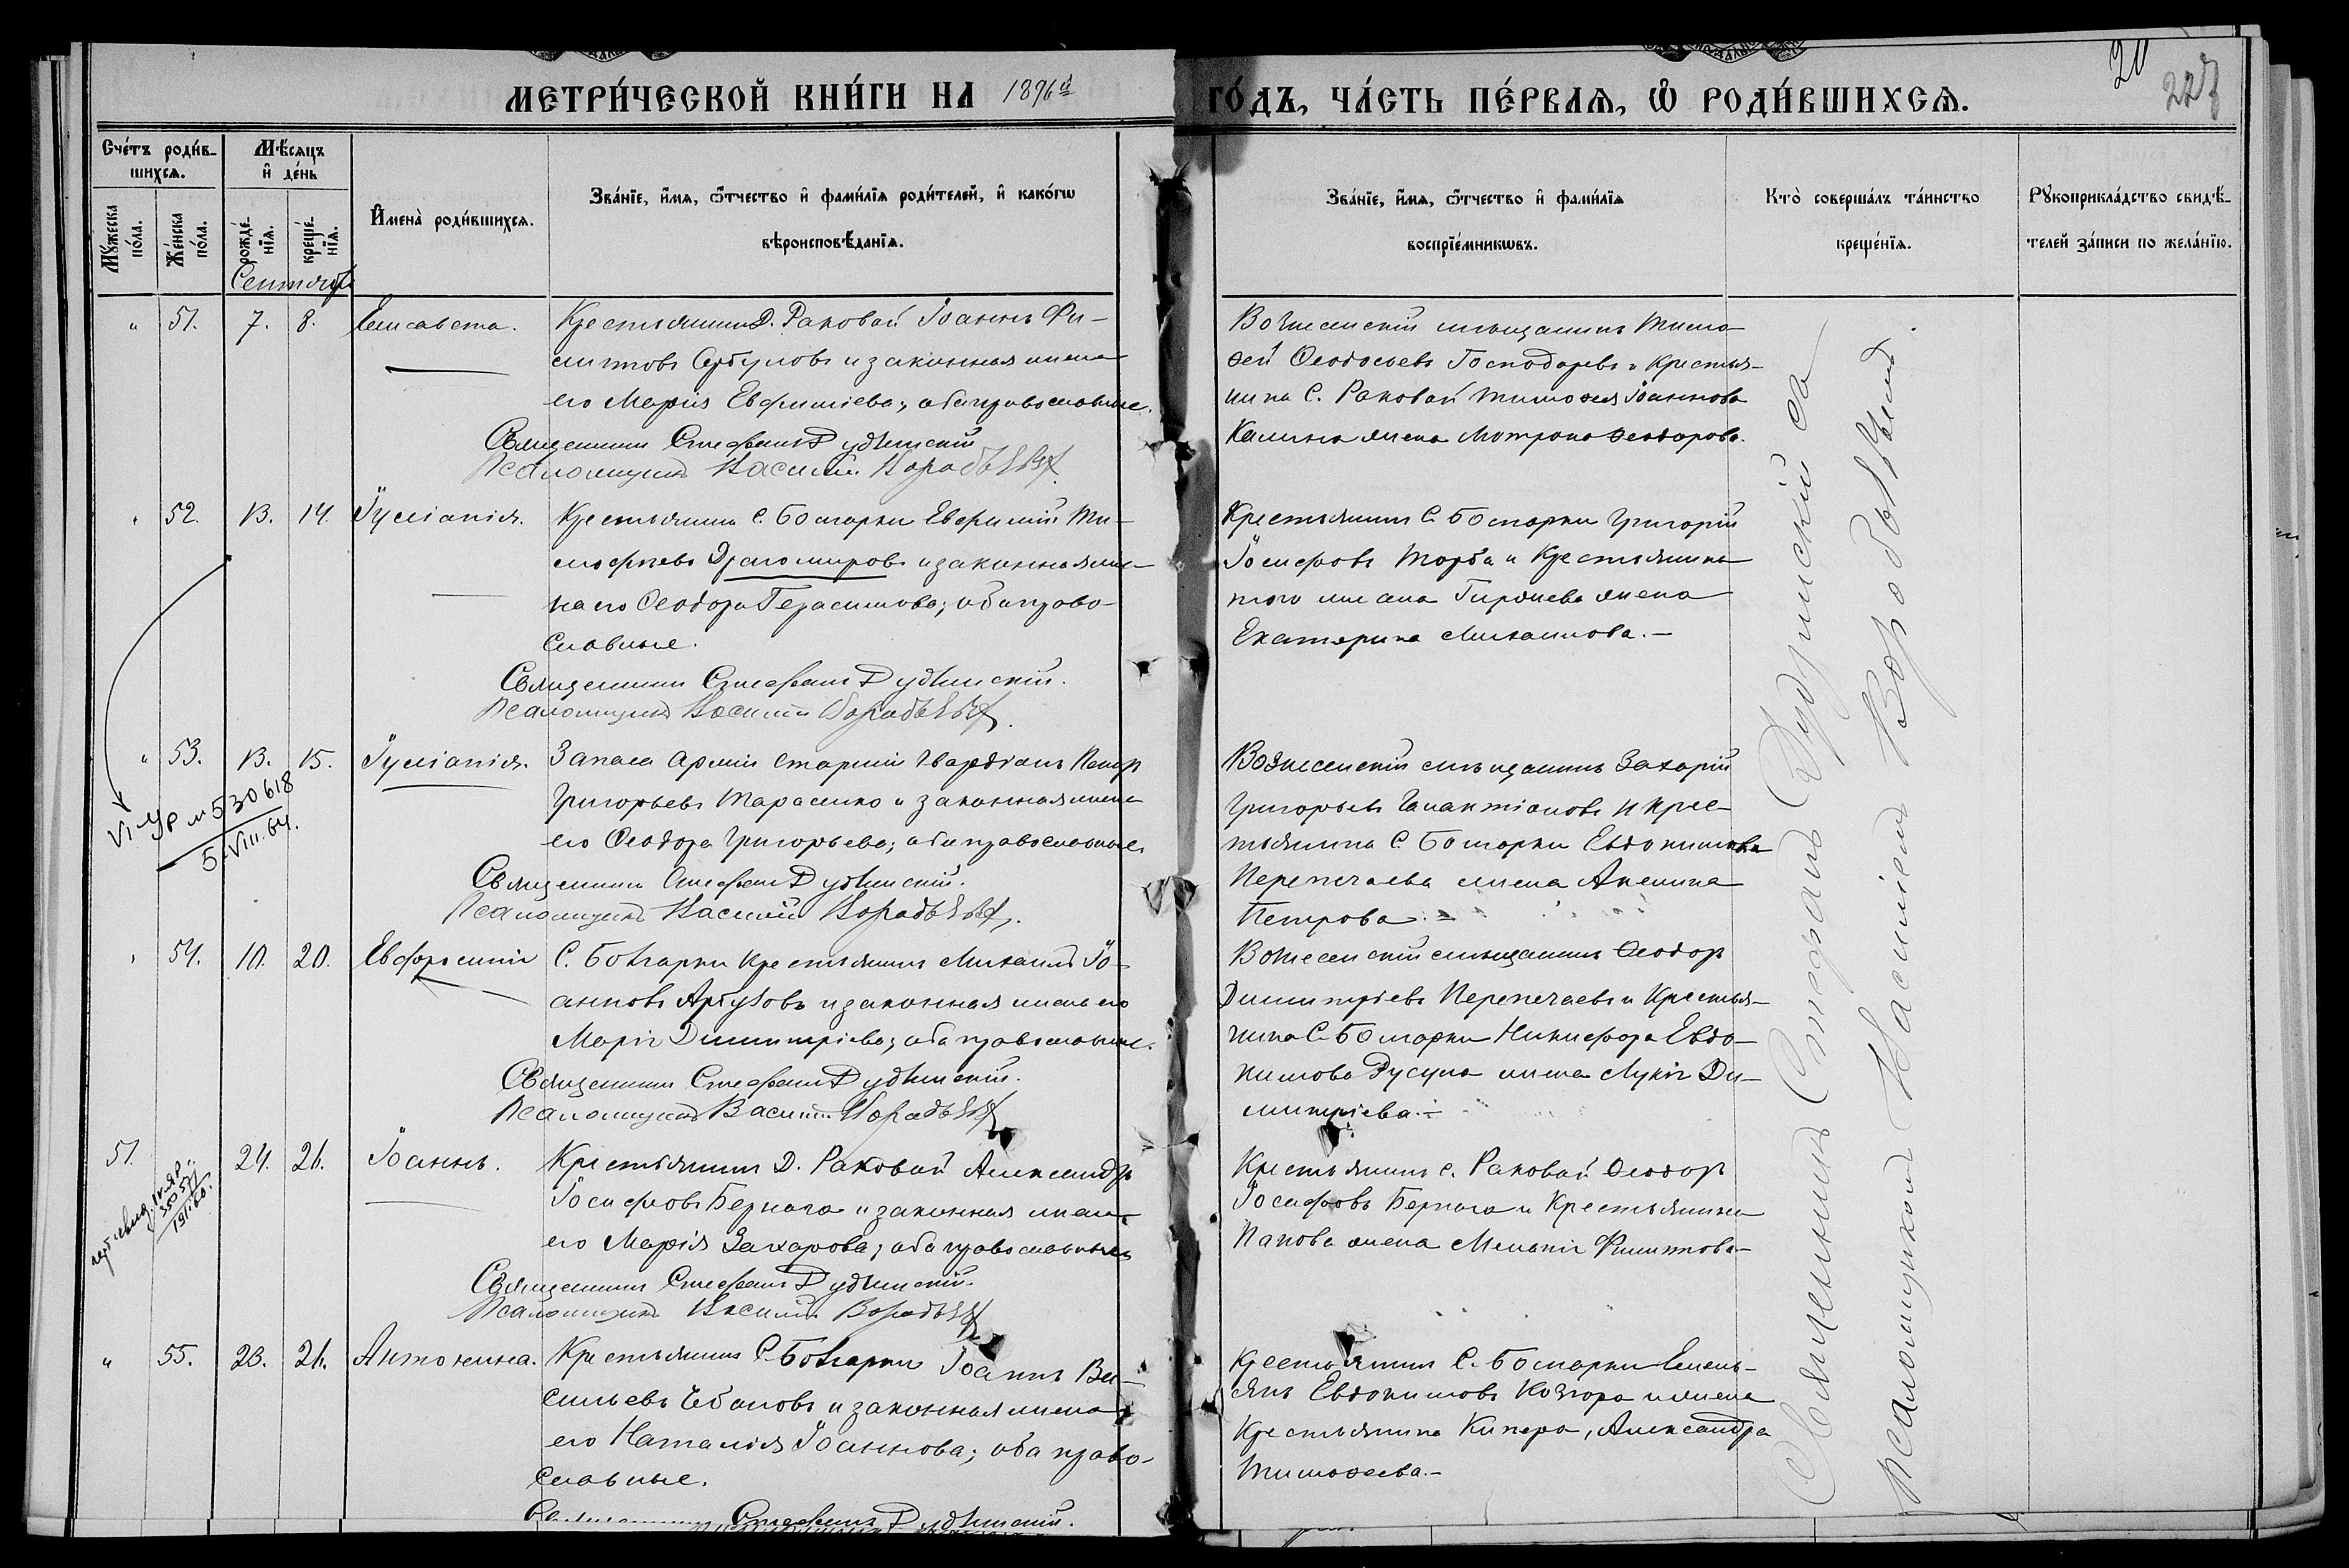 МЕТРИ́ЧЕСКОЙ КНИ́ГИ НА 1896й
ГО́ДЪ, ЧА́СТЬ ПЕ́РВАѦ, Ѽ РОДИ́ВШИХСѦ.
20
227
Сче́тъ роди́в-
шихсѧ.
Мꙋ́жеска
по́ла.
Же́нска
по́ла.
Мѣ́сѧцъ
и҆ де́нь
рожде́-
нїѧ.
креще́-
нїѧ.
И҆мена̀ роди́вшихсѧ.
Зва́нїе, и҆́мѧ, ѻ҆́тчество и҆ фами́лїѧ роди́телей, и҆ како́гѡ
вѣроисповѣ́данїѧ.
Зва́нїе, и҆́мѧ, ѻ҆́тчество и҆ фами́лїѧ
воспрїе́мникѡвъ.
Кто̀ соверша́лъ та́инство
креще́нїѧ.
Рꙋкоприкла́дство свидѣ́-
телей за́писи по жела́нїю.
Сентябрь
" 51. 7. 8. Елисавета.
Крестьянинъ Д. Раковой Іоаннъ Фи-
липповъ Арбузовъ и законная жена
его Марія Евфиміева; оба православные.
Священникъ Стефанъ Дудзинскій
Псаломщикъ Василій
Вознесенскій мѣщанинъ Тимо-
ѳей Ѳеодосьевъ Господаревъ и крестья-
нина С. Раковой Тимоѳея Іоаннова
Калина жена Мотрона Ѳеодорова.
" 52. 13. 14. Іуліанія.
Крестьянинъ С. Болгарки Евфимій Ти-
моѳеевъ Драгомировъ и законная же-
на его Ѳеодора Герасимова; оба право-
славные.
Священникъ Стефанъ Дудзинскій.
Псаломщикъ Василій
Крестьянинъ С. Болгарки Григорій
Іосифовъ Торба и Крестьянина
того же села жена
Екатерина Михаилова.-
VI-ЯР № 530618
5.VIII.64.
" 53. 13. 15. Іуліанія.
Запаса Арміи старшій Петръ
Григорьевъ Тарасенко и законная жена
его Ѳеодора Григорьева; оба православные.
Священникъ Стефанъ Дудзинскій.
Псаломщикъ Василій
Вознесенскій мѣщанинъ Захарій
Григорьевъ Галактіоновъ и крес-
тьянина С. Болгарки Евдокимова
Перепечаева жена Акилина
Петрова.-
" 54. 10. 20. Евфросинія
С. Болгарки Крестьянинъ Михаилъ Іо-
анновъ Арбузовъ и законная жена его
Марія Димитріева; оба православные.
Священникъ Стефанъ Дудзинскій.
Псаломщикъ Василій
Вознесенскій мѣщанинъ Ѳеодоръ
Димитріевъ Перепечаевъ и Крестья-
нина С. Болгарки Никифора Евдо-
кимова Русула жена Лукія Ди-
митріева.-
51. 24. 26. Іоаннъ.
19.I.60.
Крестьянинъ Д. Раковой Александръ
Іосифовъ Бернага и законная жена
его Марія Захарова; оба православные
Священникъ Стефанъ Дудзинскій.
Псаломщикъ Василій
Крестьянинъ С. Раковой Ѳеодоръ
Іосифовъ Бернага и Крестьянина
Попова жена Меланія Филиппова-
" 55. 23. 26. Антонина.
Крестьянинъ С. Болгарки Іоаннъ Ва-
сильевъ Чебановъ и законная жена
его Наталія Іоаннова; оба право-
славные.
Священникъ Стефанъ Дудзинскій.
Крестьянинъ С. Болгарки Емель-
янъ Евдокимовъ и жена
Крестьянина Кипера, Александра
Тимоѳеева.-
Священникъ Стефанъ Дудзинскій съ
Псаломщикомъ Василіемъ